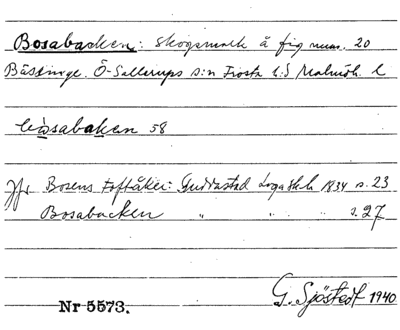 Bosabacken: Skogsmark å fig num. 20
Bästinge. Ö-Sallerups s:n Frosta h:d Malmöh. l
bòsabaken 58
Jfr Bosens toftåker: Gudrastad Laga Sk.h 1834 s. 23
Bosabacken " " " s. 27
G. Sjöstedt 1940
Nr 5573.